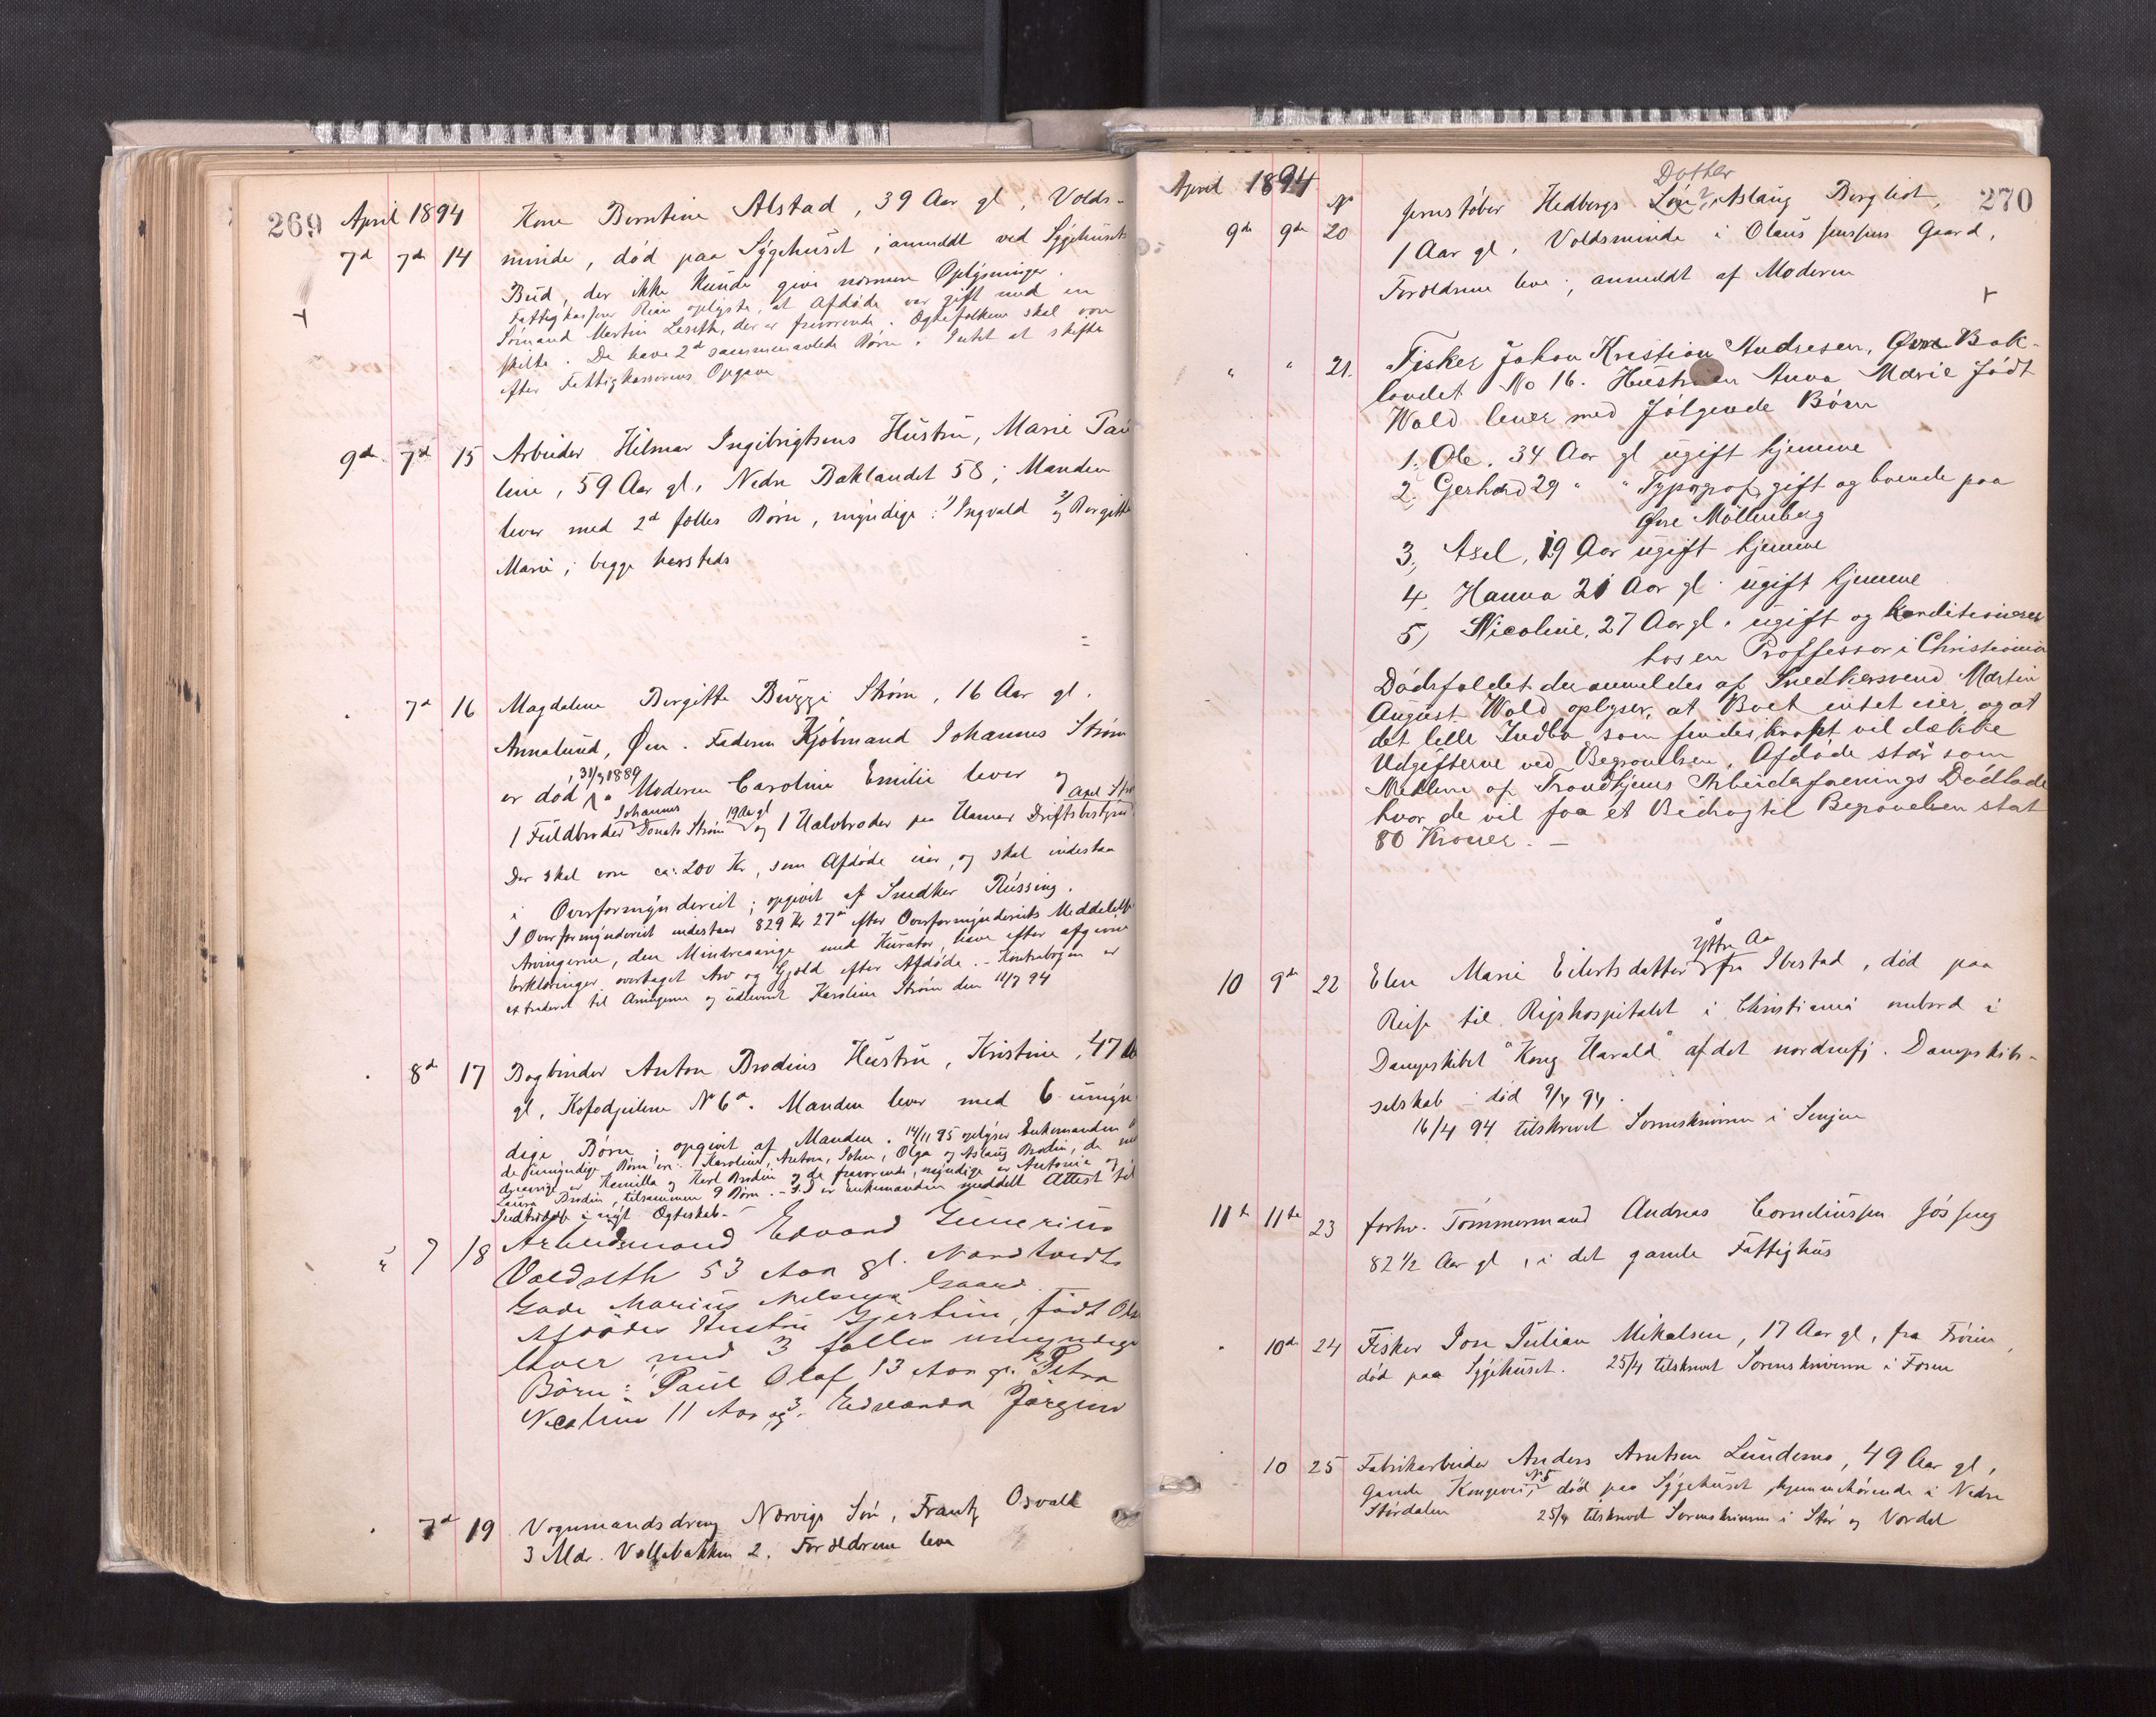 269 April 1894
7d 7d 14 Kone Berntine Alstad, 39 Aar gl, Volds-
minde, død paa Sygehuset; anmeldt ved Sygehusets
Bud, der ikke kunde give nærmere Oplysninger.
Fattigkasserer Rian oplyste, at Afdøde var gift med en
Sømand Martin Leseth, der er fraværende. Ægtefolkene skal være
skilte. De have 2d sammenavlede Børn. Intet at skifte
efter Fattigkassererens Opgave
9de 7d 15 Arbeider Hilmar Ingebrigtsens Hustru, Marie Pau
line, 59 Aar gl, Nedre Baklandet 58; Manden
lever med 2d fælles Børn, myndige: 1) Ingvald og 2) Bergitte
Marie; begge hersteds
7d 16 Magdalene Bergitte Brigge Strøm, 16 Aar gl.
Annalund, Øen. Faderen Kjøbmand Johannes Strøm
er død, 31/3 1889. Moderen Caroline Emilie lever og
1 Fuldbroder Johannes Donato Strøm 19 Aar gl og 1 Halvbroder paa Hamar Driftsbestyrer Axel Strøm
Der skal være ca: 200 Kr, som Afdøde eier, og skal indestaa
i Overformynderiet; opgivet af Snedker Rüssing.
I Overformynderiet indestaar 829 Kr 27 ø efter Overformynderiets Meddelelse
Arvingerne, den Mindreaarige med Kurator, have efter afgivne
Erklæringer overtaget Arv og Gjæld efter Afdøde. - Kontrabogen er
extraderet til Arvingerne og udleveret Karoline Strøm den 11/7 94
8d 17 Bogbinder Anton Brodins Hustru, Kristine, 47 Aar
gl, Kofodgeilene No 6a. Manden lever med 6 umyn
dige Børn; opgivet af Manden. 14/11 95 oplyser Enkemanden at
de umyndige Børn er: Karoline, Anton, John, Olga og Aslaug Brodin, de min
dreaarige er Kamilla og Karl Brodin og de fraværende, myndige er Antonie og
Laura Brodin, tilsammen 9 Børn. - S.D er Enkemanden meddelt Attest til
Indtrædelse i nyt Ægteskab. -
" 7 18 Arbeidsmand Edvard Gunerius
Voldseth 53 Aar gl. Nardtvedts
Gade Marius Nielsens Gaard.
Afdødes Hustru Gjertine, født Ols
lever med 3 fælles umyndige
Børn: 1 Paul Olaf 13 Aar gl. 2 Petra
Nicoline 11 Aar og 3. Edvarda Jørgine
7d 19 Vognmandsdreng Norvigs Søn, Frantz Osvald
3 Mdr. Vollabakken 2. Forældrene leve
April 1894 270
9de 9de No 20 Jernstøber Hedbergs Søn? Dotter Aslaug Bergliot,
1 Aar gl. Voldsminde i Olaus Jensens Gaard,
Forældrene leve; anmeldt af Moderen
" " 21. Fisker Johan Kristian Andresen, Øvre Bak-
landet No 16. Hustruen Anna Marie født
Wold lever med følgende Børn
1. Ole. 34 Aar gl ugift hjemme
2. Gerhard 29 " " Typograf, gift og boende paa
Øvre Møllenberg
3, Axel, 19 Aar ugift hjemme
4. Hanna 21 Aar gl. ugift hjemme
5) Nicoline, 27 Aar gl. ugift og konditionerer
hos en Proffessor i Christiania
Dødsfaldet der anmeldes af Snedkersvend Martin
August Wold oplyser, at Boet intet eier, og at
det lille Indbo som findes knapt vil dække
Udgifterne ved Begravelsen. Afdøde står som
Medlem af Trondhjems Arbeiderforenings Dødslade
hvor de vil faa et Bidrag til Begravelsen stort
80 Kroner. -
10 9de 22 Elen Marie Eilertsdatter fra Yttre Aa Ibestad, død paa
Reise til Rigshospitalet i Christiania ombord i
Dampskibet "Kong Harald" af det nordenfj. Dampskibs-
selskab - død 9/4 94.
16/4 94 tilskrevet Sorenskriveren i Senjen
11te 11te 23 forhv. Tømmermand Andreas Corneliussen Jøssing
82 1/2 Aar gl, i det gamle Fattighus
10de 24 Fisker Jon Julian Mikalsen, 17 Aar gl, fra Frøien,
død paa Sygehuset. 25/4 tilskrevet Sorenskriveren i Fosen
10 25 Fabrikarbeider Anders Arntsen Lundemo, 49 Aar gl,
Gamle Kongevei No 5, død paa Sygehuset, hjemmehørende i Nedre
Størdalen 25/4 tilskrevet Sorenskriveren i Stør og Værdal